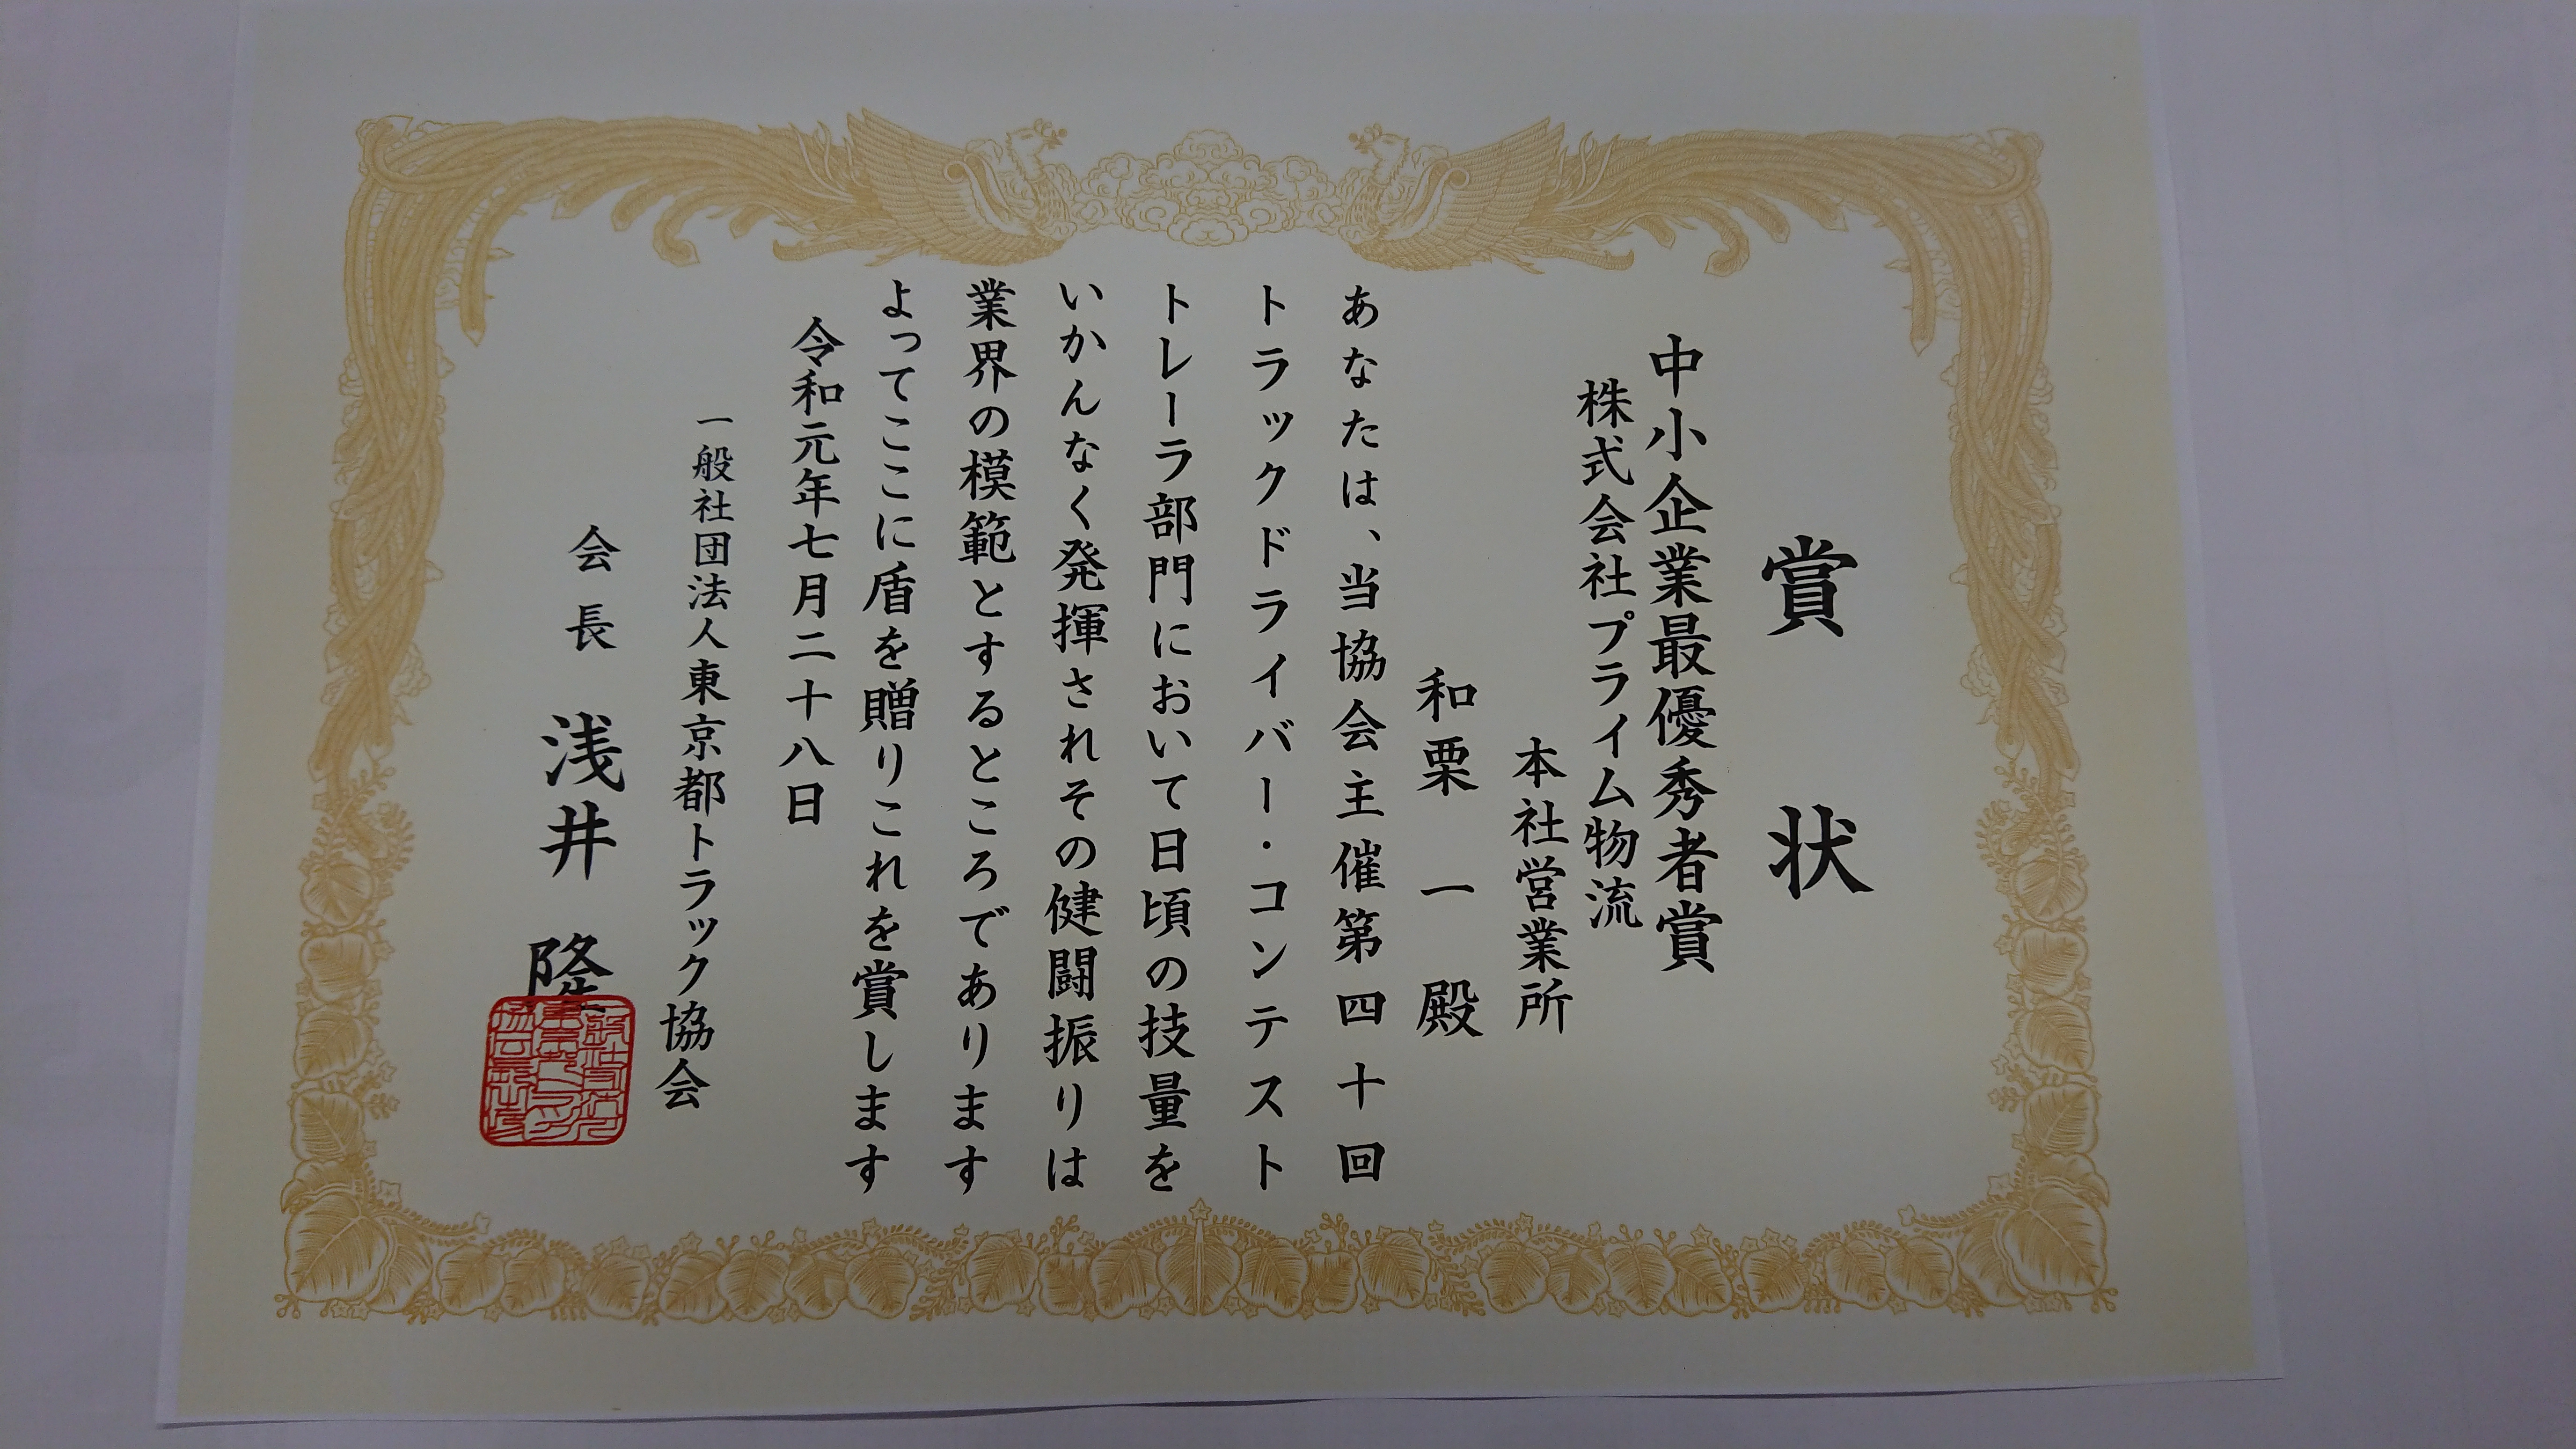 賞状
中小企業最優秀者賞
株式会社プライム物流
本社営業所
和栗 一 殿
あなたは、当協会主催第四十回
トラックドライバー・コンテスト
トレーラ部門において日頃の技量を
いかんなく発揮されその健闘振りは
業界の模範とするところであります
よってここに盾を贈りこれを賞します
令和元年七月二十八日
一般社団法人東京都トラック協会
会長 浅井 隆